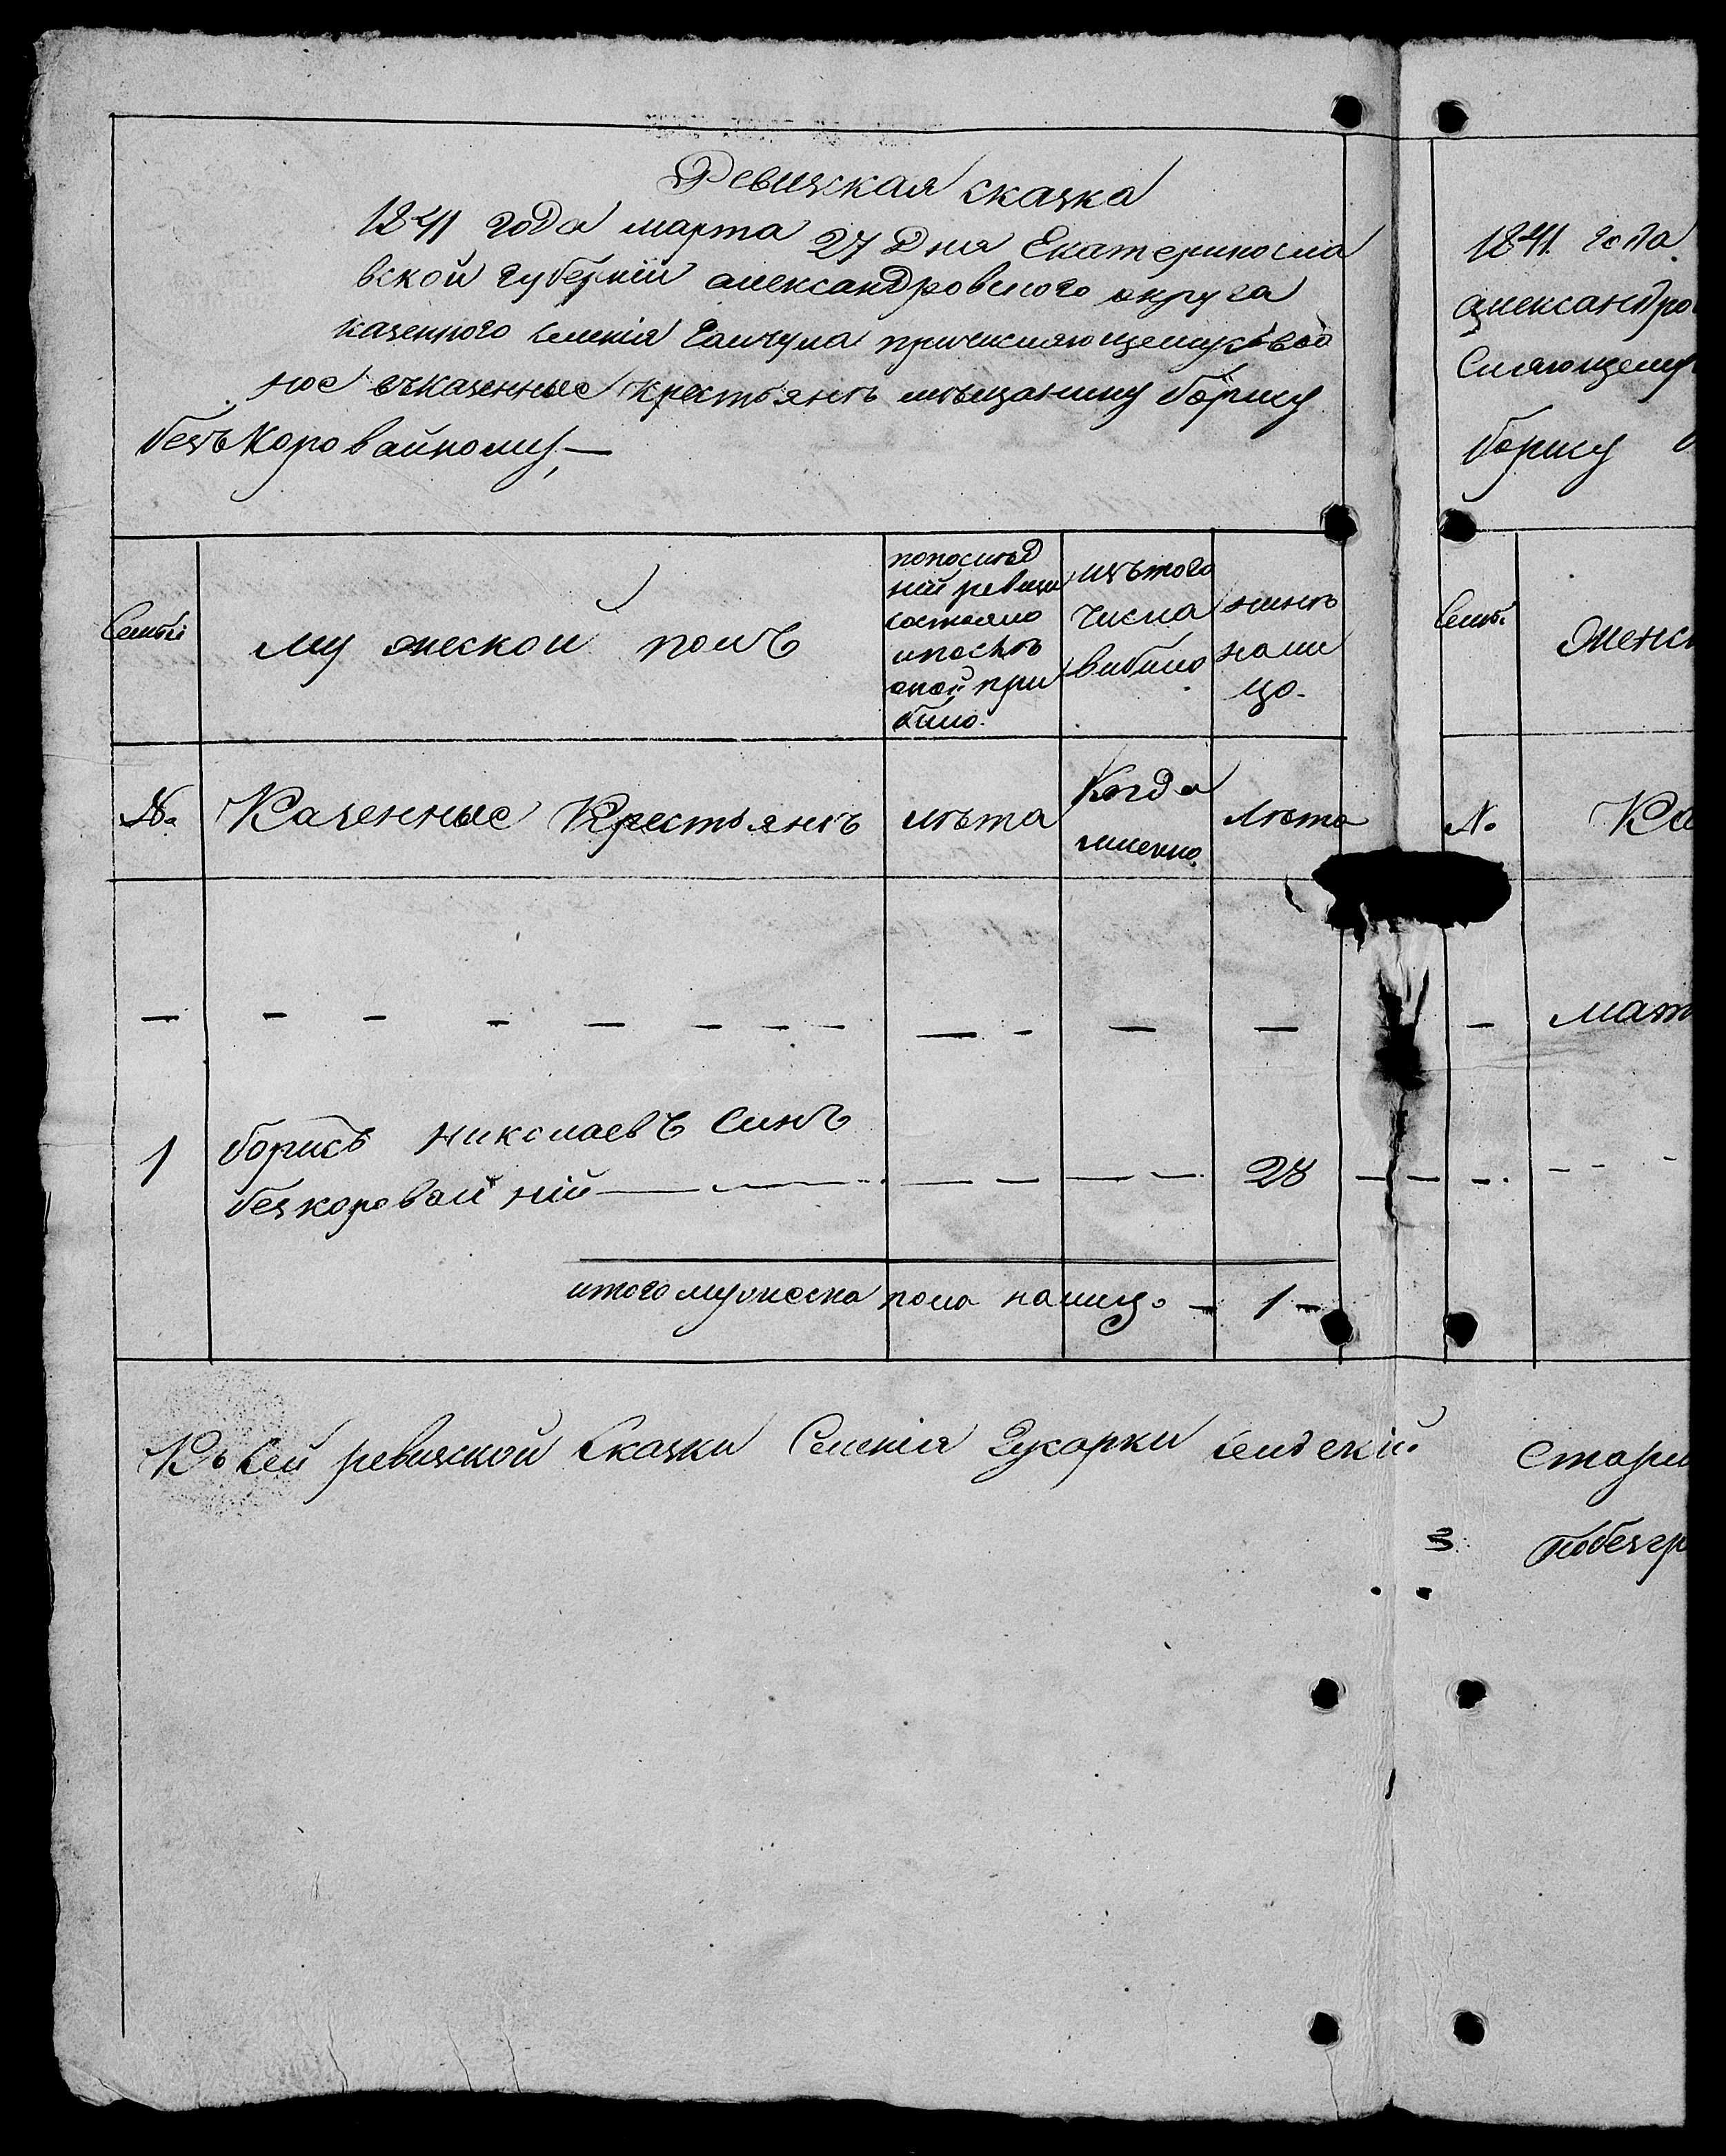 Ревизкая сказка
1841 года марта 27 дня Екатериносла
вской губерніи александровского округа
казенного селенія Гайчула причисляющемуся вод
ное въказенные крестьянъ мѣщанину борису
безъкоровайному,—
Семьи
мужеской полъ
попослѣд
ній ревизи
состояло
ипослѣ
оной при
било.
изътого
числа
вибило
нинѣ
нали
цо.
№
Казенные Крестьянъ
лѣта
Когда
именно.
лѣта
— - - - - - - - - — - — —
1 борисъ николаевъ синъ
безкоровайній — — — — 28
итого мужеска пола налицо - 1 -
Къ сей ревизкой сказки Селенія Гусарки селскій
1841. года
александро
сляющему
борису
Семьи
Женс
№ Ка
— мат
старш
3. побезгр